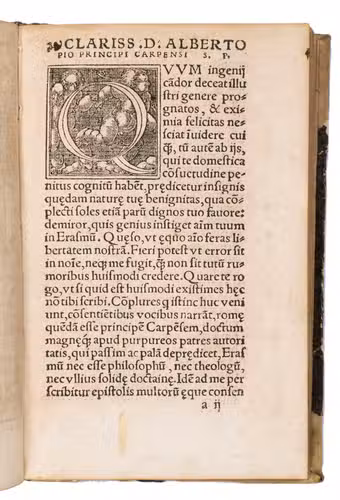 CLARISS. D. ALBERTO
PIO PRINCIPI CARPENSI S. P.
QVVM ingenij
cādor deceat illu
stri genere pro
gnatos, & exi
mia felicitas ne
sciat īuidere cui
q̄, tū autē ab ijs,
qui te domestica
cōsuctudine pe
nitus cognitū habēt, prędicetur insignis
quędam naturę tuę benignitas, qua cō
plecti soles etiā parū dignos tuo fauore:
demiror, quis genius instiget aīm tuum
in Erasmū. Quęso, vt ęquo aīo feras li
bertatem nostrā. Fieri potest vt error sit
in noīe, neq; me fugit, q̄ non sit tutū ru
moribus huiusmodi credere. Quare tē ro
go, vt si quid est huiusmodi existimes hęc
nō tibi scribi. Cōplures q istinc huc veni
unt, cōsentiētibus vocibus narrāt, romę
quēdā esse principē Carpēsem, doctum
magnęq; apud purpureos patres autori
tatis, qui passim ac palā deprędicet, Eras
mū nec esse philosophū , nec theologū,
nec vllius solidę doctrinę. Idē ad me per
scribitur epistolis multorū ęque consen
a ij